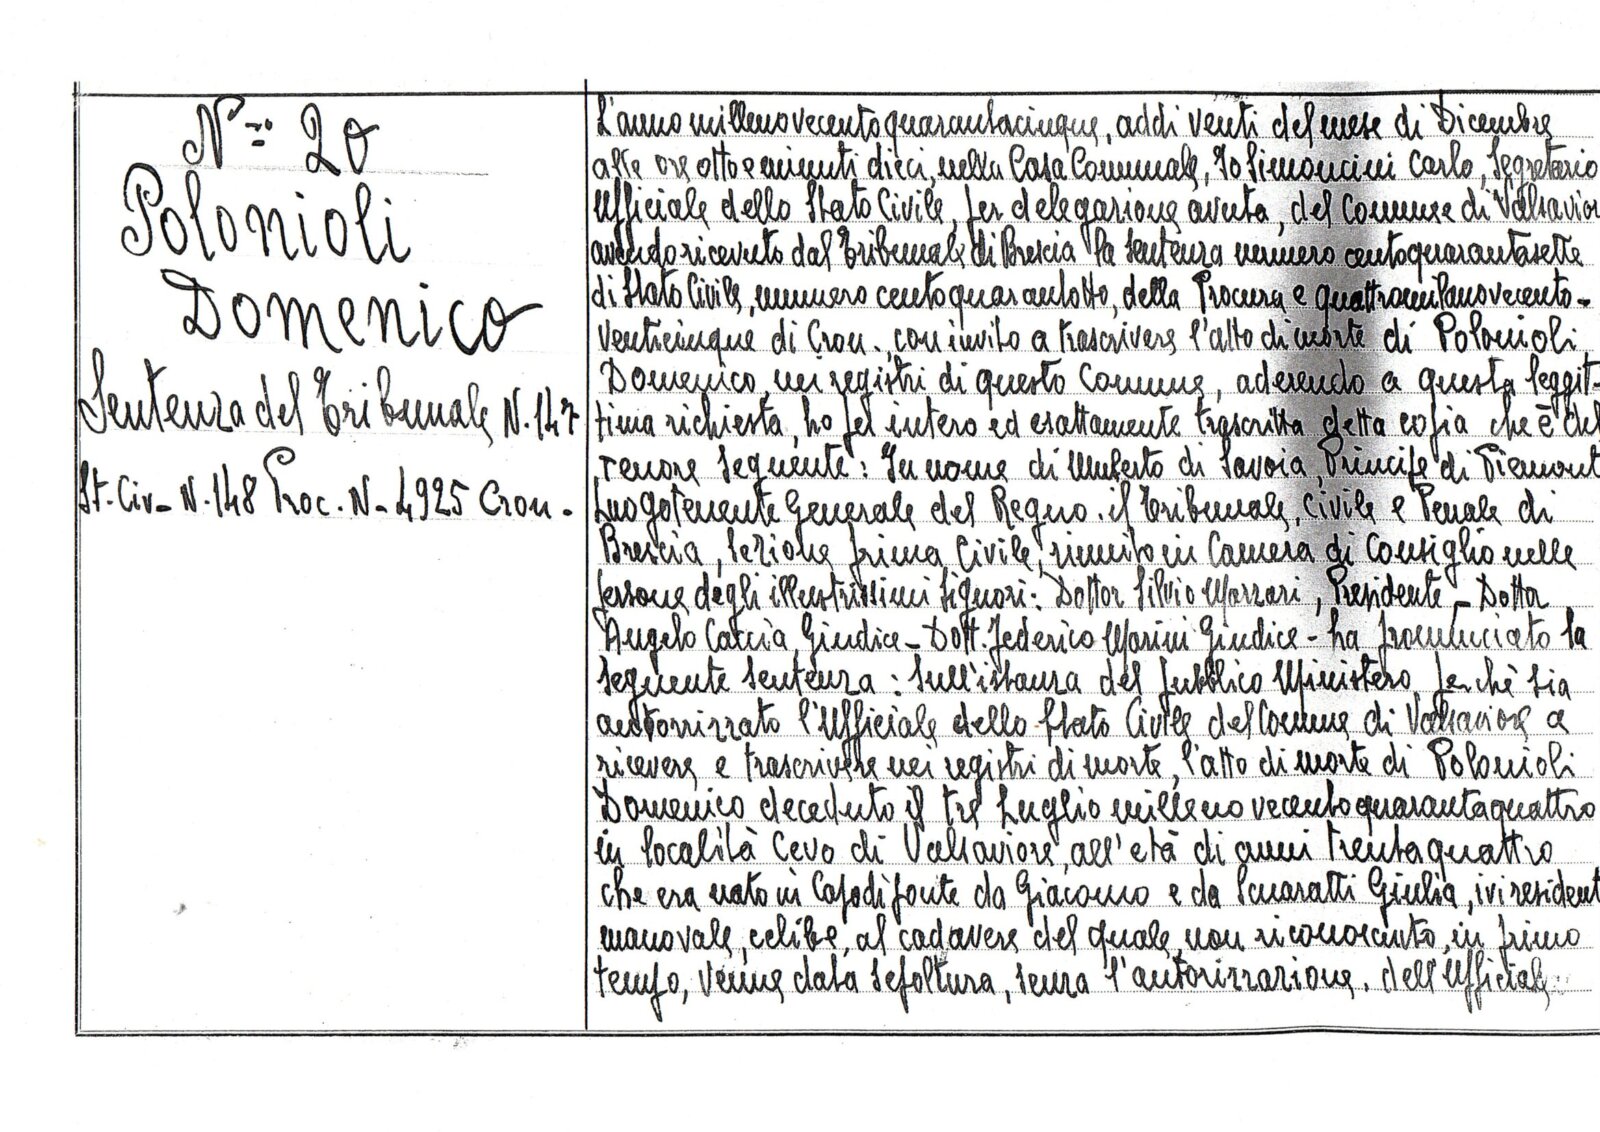 N.º 20
Polonioli
Domenico
Sentenza del Tribunale N. 147
St. Civ - N. 148 Proc. N - 4925 Cron -
L'anno millenovecentoquarantacinque, addì venti del mese di Dicembre
alle ore otto e minuti dieci, nella Casa Comunale, Io Simoncini Carlo, Segretario
Ufficiale dello Stato Civile, per delegazione avuta, del Comune di Valsavior
avendo ricevuto dal Tribunale di Brescia la sentenza numero centoquarantasette
di Stato Civile, numero centoquarantotto, della Procura e quattromilanovecento-
venticinque di Cron., con invito a trascrivere l'atto di morte di Polonioli
Domenico, nei registri di questo Comune, aderendo a questa leggit-
tima richiesta, ho per intero ed esattamente trascritta detta copia che è del
tenore seguente: In nome di Umberto di Savoia, Principe di Piemont
Luogotenente Generale del Regno. il Tribunale, Civile e Penale di
Brescia, sezione prima Civile, riunito in Camera di Consiglio nelle
persone degli illustrissimi Signori: Dottor Silvio Marrari, Presidente - Dottor
Angelo Caccia, Giudice - Dott. Federico Marini Giudice - ha pronunciato la
seguente sentenza: Sull'istanza del Pubblico Ministero, perchè sia
autorizzato l'Ufficiale dello Stato Civile del Comune di Valsaviore a
ricevere e trascrivere nei registri di morte, l'atto di morte di Polonioli
Domenico deceduto il tre Luglio millenovecentoquarantaquattro
in località Cevo di Valsaviore, all'età di anni trentaquattro
che era nato in Capodiponte da Giacomo e da Scaratti Giulia, ivi resident
manovale, celibe, al cadavere del quale, non riconosciuto, in primo
tempo, venne data sepoltura, senza l'autorizzazione. dell'Ufficiale